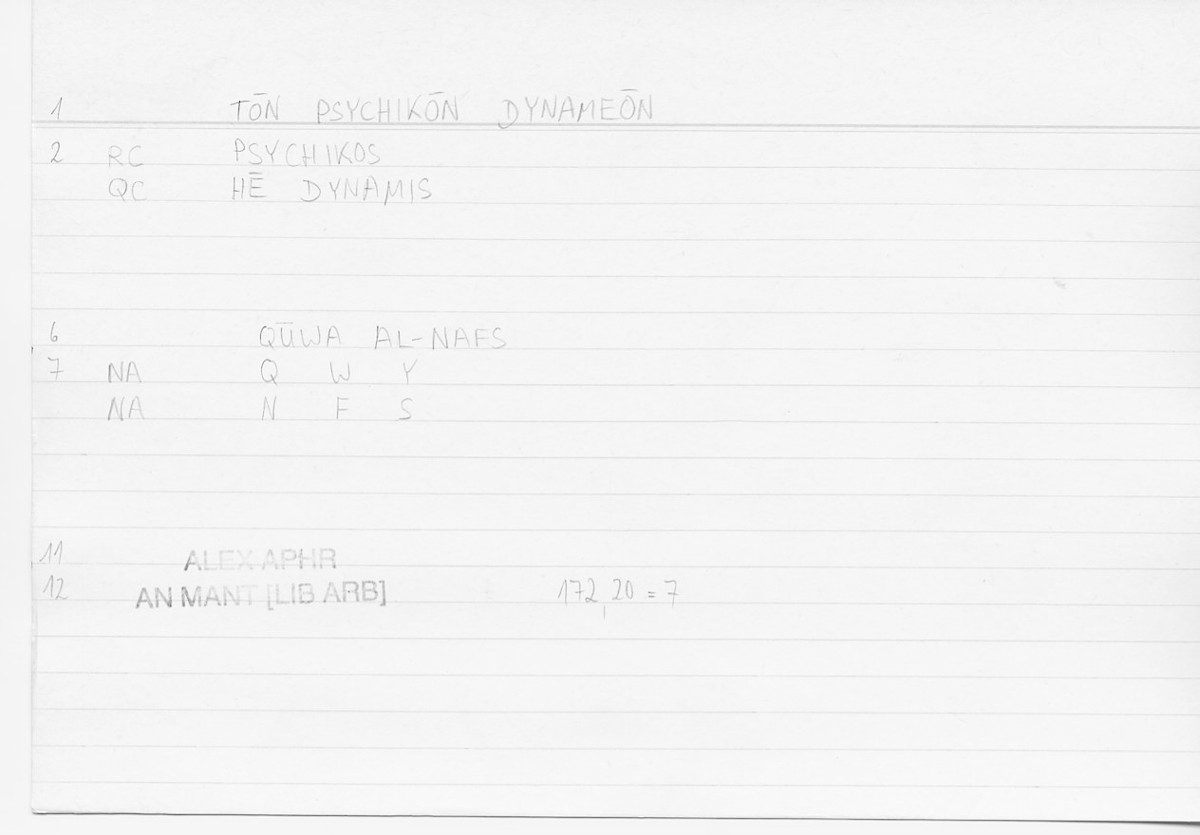 1 TŌN PSYCHIKŌN DYNAMEŌN
2 RC PSYCHIKOS
QC HĒ DYNAMIS
6 QŪWA AL-NAFS
7 NA Q W Y
NA N F S
11 ALEX APHR
12 AN MANT [LIB ARB] 172,20 = 7